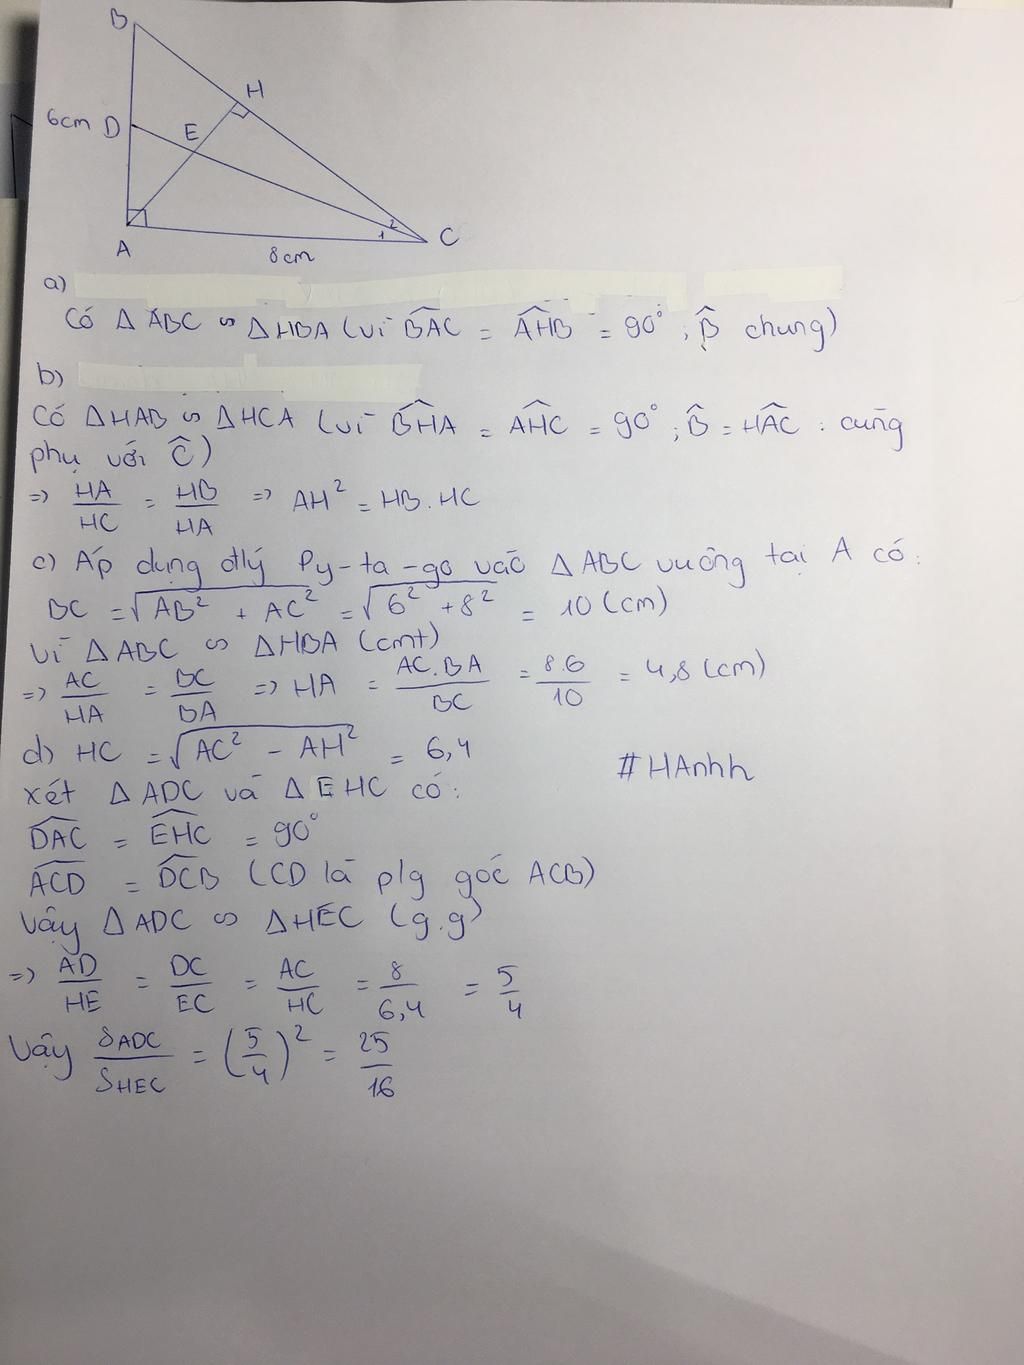 B
H
6cm D
E
1
2
A
C
8cm
a)
Có Δ ABC ∽ ΔHBA (vì \widehat{BAC} = \widehat{AHB} = 90° ; \widehat{B} chung)
b)
Có ΔHAB ∽ ΔHCA (vì \widehat{BHA} = \widehat{AHC} = 90° ; \widehat{B} = \widehat{HAC} : cùng
phụ với \widehat{C})
=> HA/HC = HB/HA => AH² = HB.HC
c) Áp dụng đlý Py-ta-go vào Δ ABC vuông tại A có:
BC = √(AB² + AC²) = √(6² + 8²) = 10 (cm)
Vì Δ ABC ∽ ΔHBA (cmt)
=> AC/HA = BC/BA => HA = AC.BA/BC = 8.6/10 = 4,8 (cm)
d) HC = √(AC² - AH²) = 6,4
#HAnhh
xét Δ ADC và Δ EHC có:
\widehat{DAC} = \widehat{EHC} = 90°
\widehat{ACD} = \widehat{DCB} (CD là p/g góc ACB)
Vậy Δ ADC ∽ ΔHEC (g.g)
=> AD/HE = DC/EC = AC/HC = 8/6,4 = 5/4
Vậy S_{ADC}/S_{HEC} = (5/4)² = 25/16